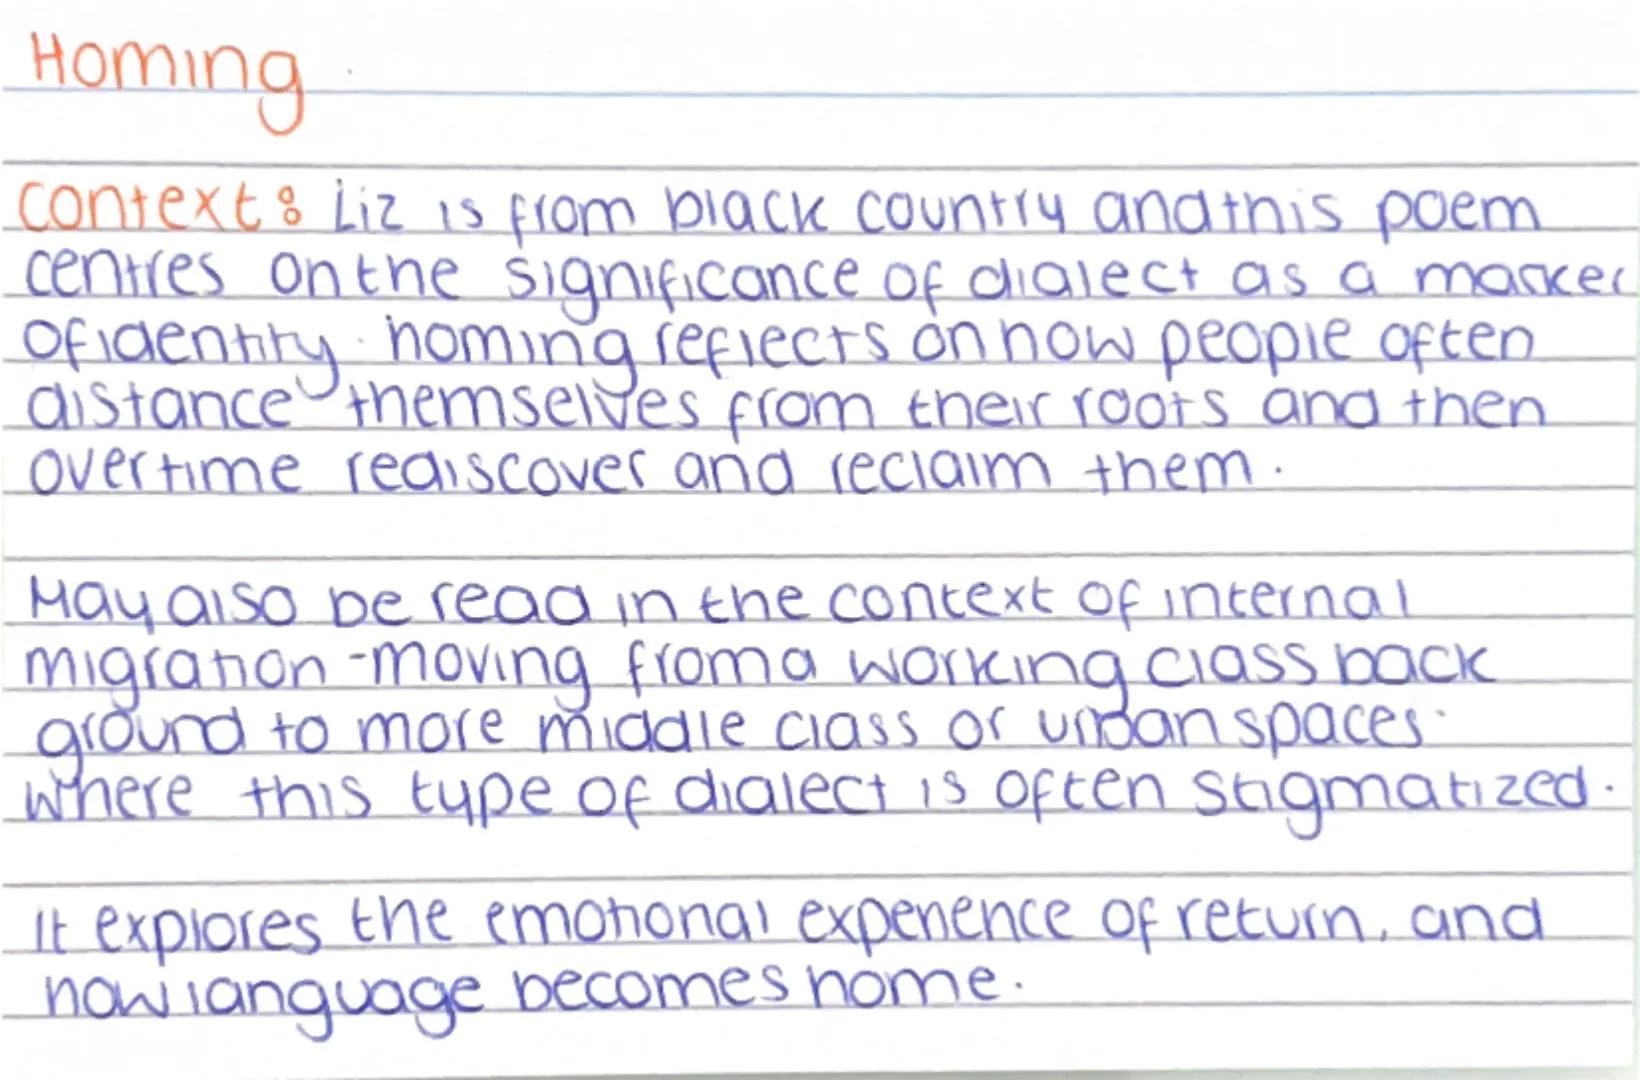 Homing
Context: Liz is from black country and this poem
centres on the significance of dialect as a marker
of identity. homing reflects on how people often
distance themselves from their roots and then
overtime rediscover and reclaim them.
May also be read in the context of internal
migration - moving from a working class back
ground to more middle class or urban spaces.
Where this type of dialect is often stigmatized.
It explores the emotional experience of return, and
how language becomes home.